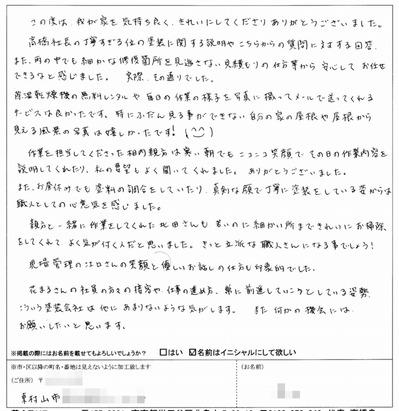 この度は、我が家を気持ち良く、きれいにしてくださりありがとうございました。
高橋社長の丁寧すぎる位の塗装に関する説明やこちらからの質問に対する回答、
また、雨の中でも細かな修復箇所を見逃さない見積もりの仕方等から安心してお任せ
できるなと感じました。 実際、その通りでした。
布団乾燥機の無料レンタルや毎日の作業の様子を写真に撮ってメールで送ってくれる
サービスは良かったです。特にふだん見る事ができない自分の家の屋根や屋根から
見える風景の写真は嬉しかったです！
作業を担当してくださった相内親方は寒い朝でもニコニコ笑顔で、その日の作業内容を
説明してくれたり、私の希望もよく聞いてくれました。ありがとうございました。
また、お昼休みでも塗料の調合をしていたり、真剣な顔で丁寧に塗装をしている姿からは
職人としての心意気を感じました。
親方と一緒に作業をしてくれた北田さんも若いのに細かい所まできれいにお掃除
をしてくれてよく気が付く人だと思いました。きっと立派な職人さんになる事でしょう！
現場管理の江口さんの笑顔と優しいお話しの仕方も印象的でした。
花まるさんの社員の方々の接客や仕事の進め方、常に前進していこうとしている姿勢、
こういう塗装会社は他にあまりないような気がします。 また何かの機会には
お願いしたいと思います。
※掲載の際にはお名前を載せてもよろしいでしょうか？ □はい ☑名前はイニシャルにして欲しい
※市・区以降の町名・番地は見えないように加工致します
（ご住所） 〒
（お名前）
東村山市